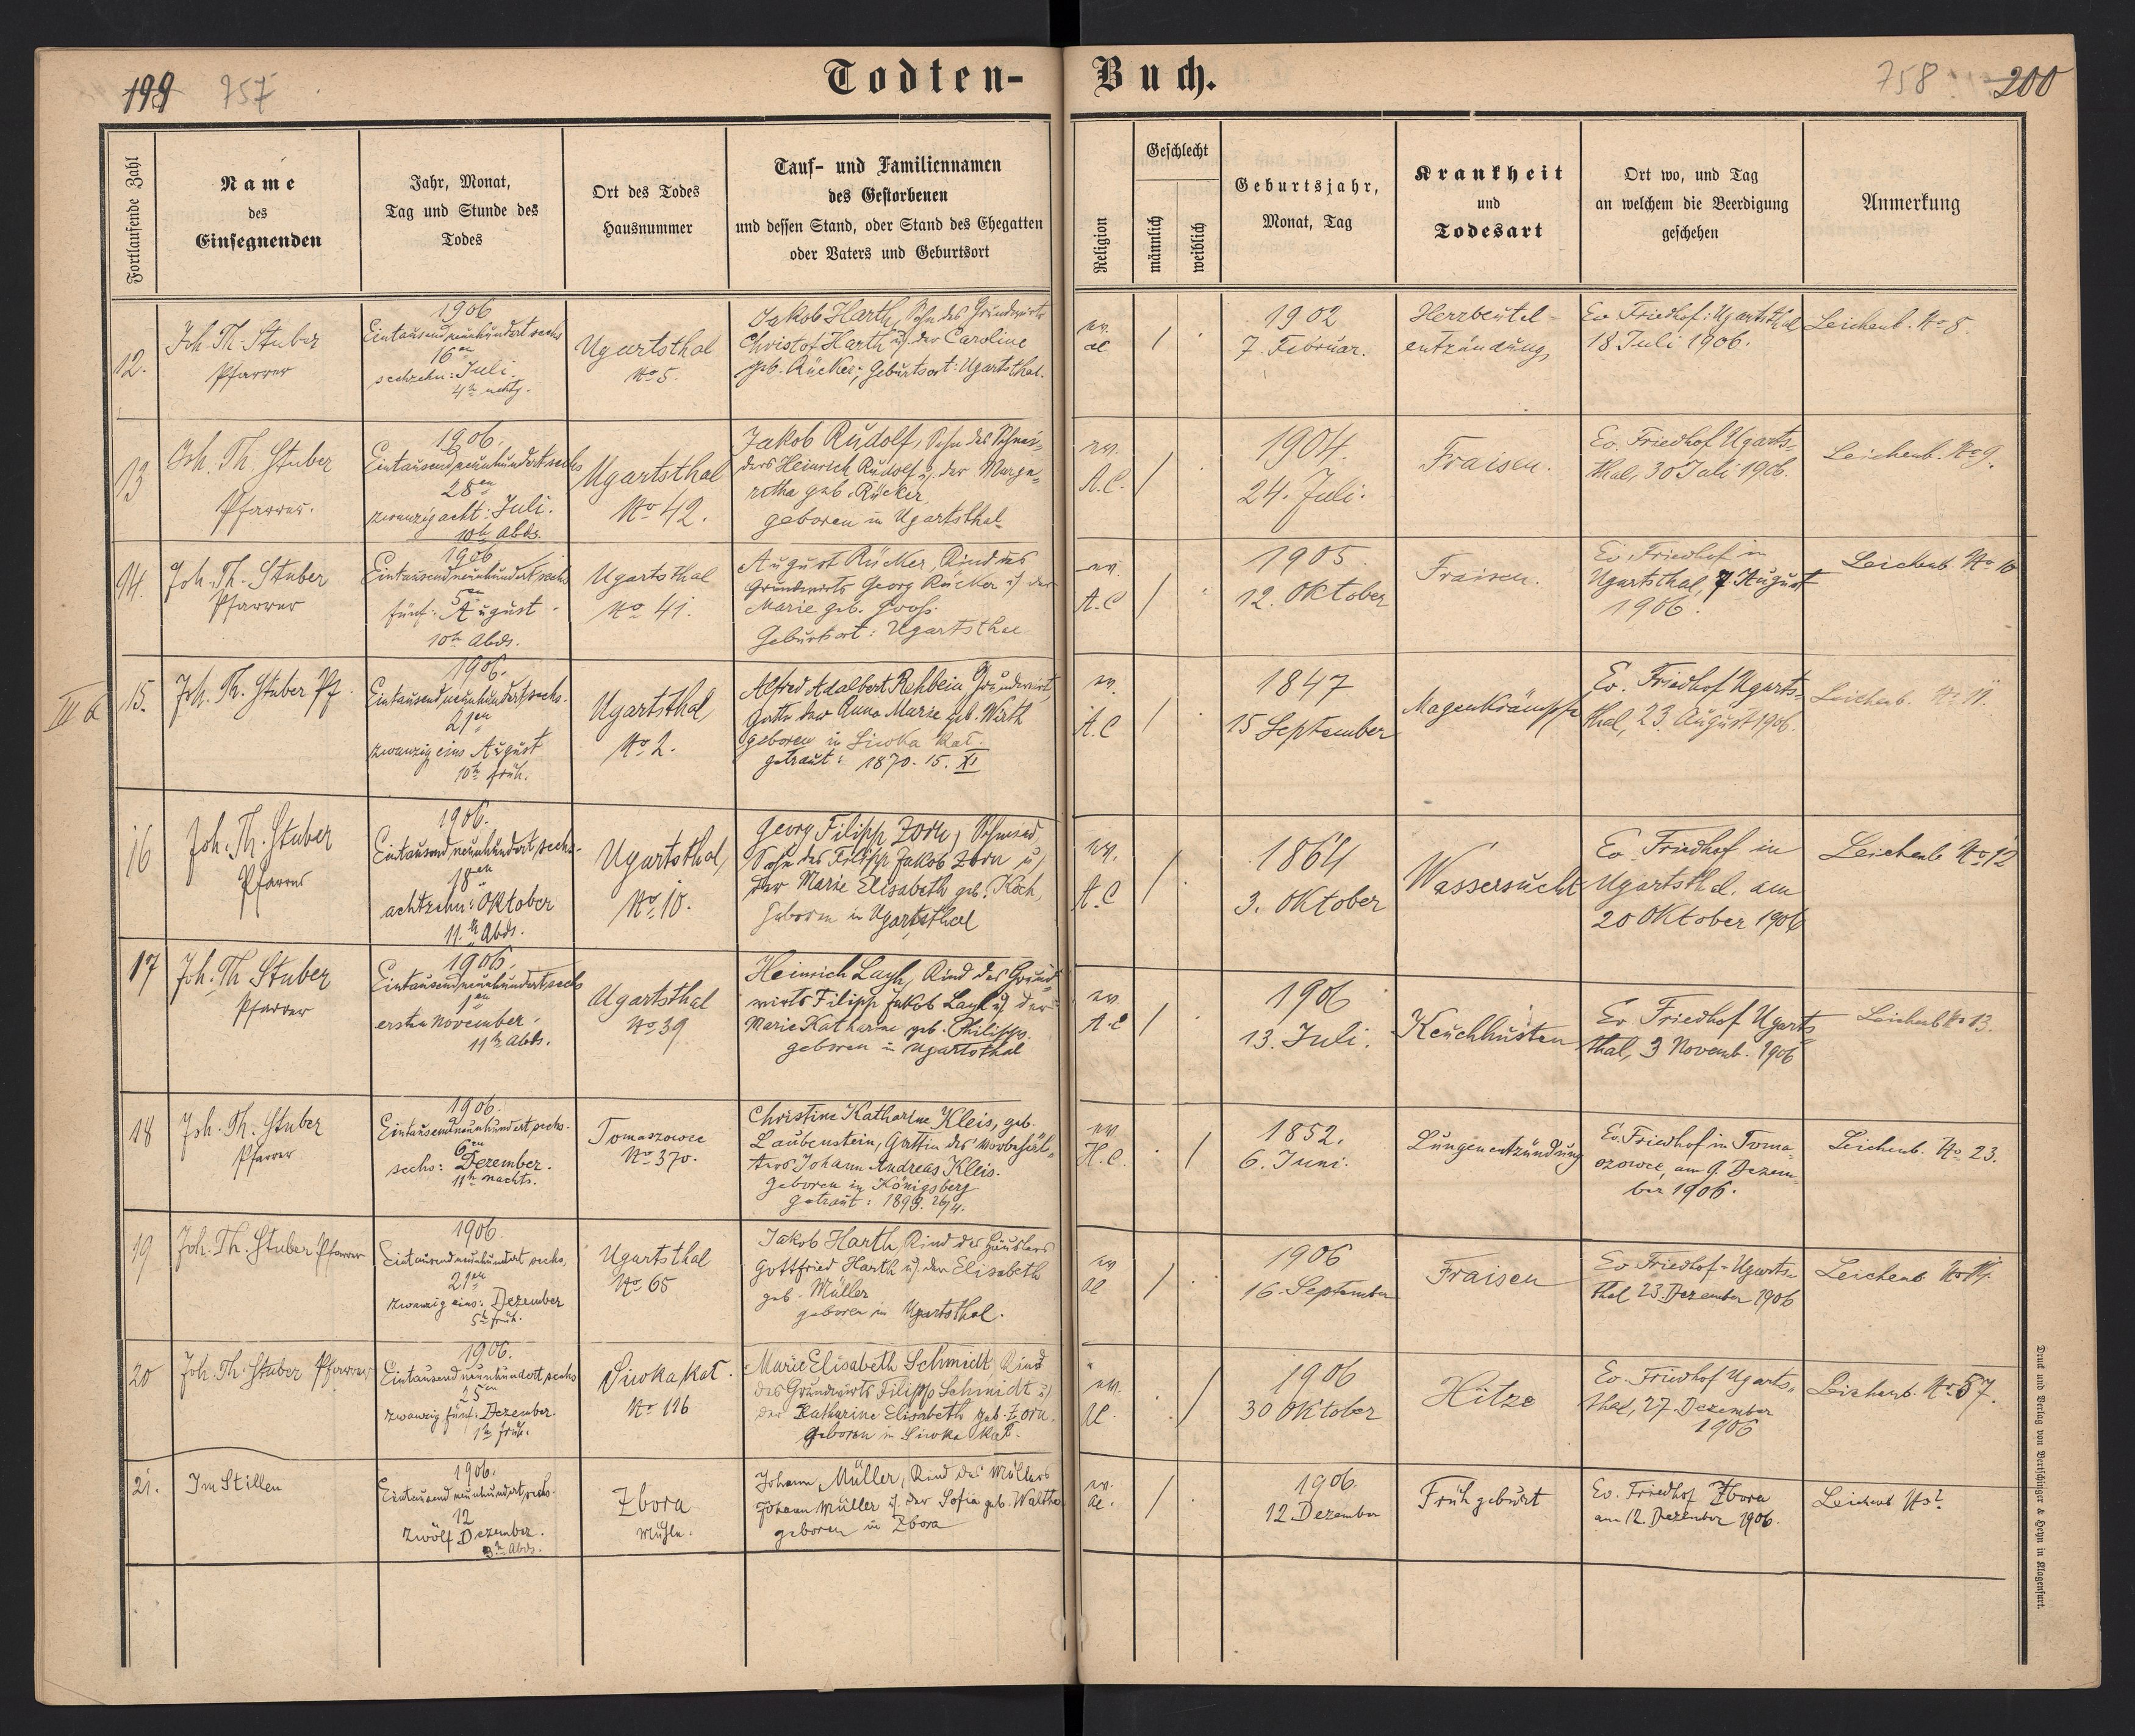 199 757
Todten-Buch.
758 200
Fortlaufende Zahl
Name
des
Einsegnenden
Jahr, Monat,
Tag und Stunde des
Todes
Ort des Todes
Hausnummer
Tauf- und Familiennamen
des Gestorbenen
und dessen Stand, oder Stand des Ehegatten
oder Vaters und Geburtsort
Religion
Geschlecht
männlich
weiblich
Geburtsjahr,
Monat, Tag
Krankheit
und
Todesart
Ort wo, und Tag
an welchem die Beerdigung
geschehen
Anmerkung
12.
Joh. Th. Stuber
Pfarrer
1906
Eintausendneunhundertsechs
16en
sechzehn: Juli.
4h
Ugartsthal
No 5.
Jakob Harth, Sohn des Grundwirts
Christof Harth u. der Caroline
geb. Rücker; Geburtsort: Ugartsthal.
ev.
ac
/
1902
7. Februar.
Herzbeutel-
entzündung
Ev. Friedhof: Ugartsthal
18 Juli 1906.
Leichenb. No 8.
13
Joh. Th. Stuber
Pfarrer.
1906.
Eintausendneunhundertsechs
28en
zwanzigacht: Juli.
10h Abds.
Ugartsthal
No 42.
Jakob Rudolf, Sohn des Schnei-
ders Heinrich Rudolf u. der Marga-
retha geb. Rücker
geboren in Ugartsthal
ev.
A.C.
/
1904.
24. Juli.
Fraisen.
Ev. Friedhof Ugarts-
thal, 30 Juli 1906.
Leichenb. No 9.
14.
Joh. Th. Stuber
Pfarrer
1906
Eintausendneunhundertsechs
5en
fünf: August
10h Abds.
Ugartsthal
No 41.
August Rücker, Kind des
Grundwirts Georg Rücker u. der
Marie geb. Gross.
Geburtsort: Ugartsthal
ev.
A.C
/
1905
12. Oktober
Fraisen.
Ev. Friedhof in
Ugartsthal, 7 August
1906.
Leichenb. No 10
III a
15.
Joh. Th. Stuber Pf.
1906.
Eintausendneunhundertsechs.
21en
zwanzigeins August
10h früh.
Ugartsthal,
No 2.
Alfred Adalbert Rehbein Grundwirt,
Gatte der Anna Marie geb. Wirth
geboren in Siwka Kal.
getraut: 1870. 15. XI
ev.
A.C
/
1847
15 September
Magenkrämpfe
Ev. Friedhof Ugarts-
thal, 23. August 1906.
Leichenb. No 11.
16
Joh. Th. Stuber
Pfarrer
1906.
Eintausendneunhundertsechs-
18en
achtzehn: Oktober
11.h Abds.
Ugartsthal,
No 10.
Georg Filipp Zorn, Schmied,
Sohn des Filipp Jakob Zorn u.
der Marie Elisabeth geb. Koch,
Geboren in Ugartsthal
ev.
A.C
/
1864
3. Oktober
Wassersucht
Ev. Friedhof in
Ugartsthal, am
20 Oktober 1906
Leichenb No 12
17
Joh. Th Stuber
Pfarrer
1906.
Eintausendneunhundertsechs
1en
erster November.
11h Abds.
Ugartsthal
No 39
Heinrich Layh, Kind des Grund-
wirts Filipp Jakob Layh u. der
Marie Katharine geb. Philipps.
geboren in Ugartsthal
ev.
A.C
/
1906
13. Juli.
Keuchhusten
Ev Friedhof Ugarts-
thal, 3 Novemb. 1906
Leichenb No 13.
18
Joh. Th. Stuber
Pfarrer
1906.
Eintausendneunhundertsechs.
6en
sechs: Dezember.
11h nachts.
Tomaszowce
No 370.
Christine Katharine Kleis, geb.
Laubenstein, Gattin des
Johann Andreas Kleis.
geboren in Königsberg
getraut:
ev
H.C.
/
1852.
6. Juni.
Lungenentzündung
Ev. Friedhof in Toma-
szowce, am 9. Dezem-
ber 1906.
Leichenb. No 23.
19
Joh. Th. Stuber Pfarrer
1906.
Eintausendneunhundert sechs.
21en
zwanzig eins: Dezember
5h früh.
Ugartsthal
No 65
Jakob Harth, Kind des Häuslers
Gottfried Harth u. der Elisabeth
geb. Müller
geboren in Ugartsthal.
ev
ac
/
1906
16. September
Fraisen
Ev Friedhof-Ugarts-
thal 23. Dezember 1906
Leichenb No 14.
20
Joh. Th. Stuber Pfarrer
1906.
Eintausendneunhundert sechs
25en
zwanzig fünf: Dezember.
1h früh.
Siwka kal.
No 116
Marie Elisabeth Schmidt Kind
des Grundwirts Filipp Schmidt u.
der Katharine Elisabeth geb. Zorn.
geboren in Siwka Kal.
ev.
ac.
/
1906
30 Oktober
Hitze
Ev. Friedhof Ugarts-
thal, 27. Dezember
1906
Leichenb. No 57.
21.
Im Stillen
1906.
Eintausendneunhundertsechs.
12
zwölf Dezember.
3h Abds.
Zbora
Mühle.
Johann Müller, Kind des Müllers
Johann Müller u. der Sofia geb. Walther
geboren in Zbora
ev.
ac.
/
1906.
12 Dezember
Frühgeburt
Ev. Friedhof Zbora
am 12. Dezember 1906.
Leichenb No 2.
Druck und Verlag von Bertschinger & Heyn in Klagenfurt.